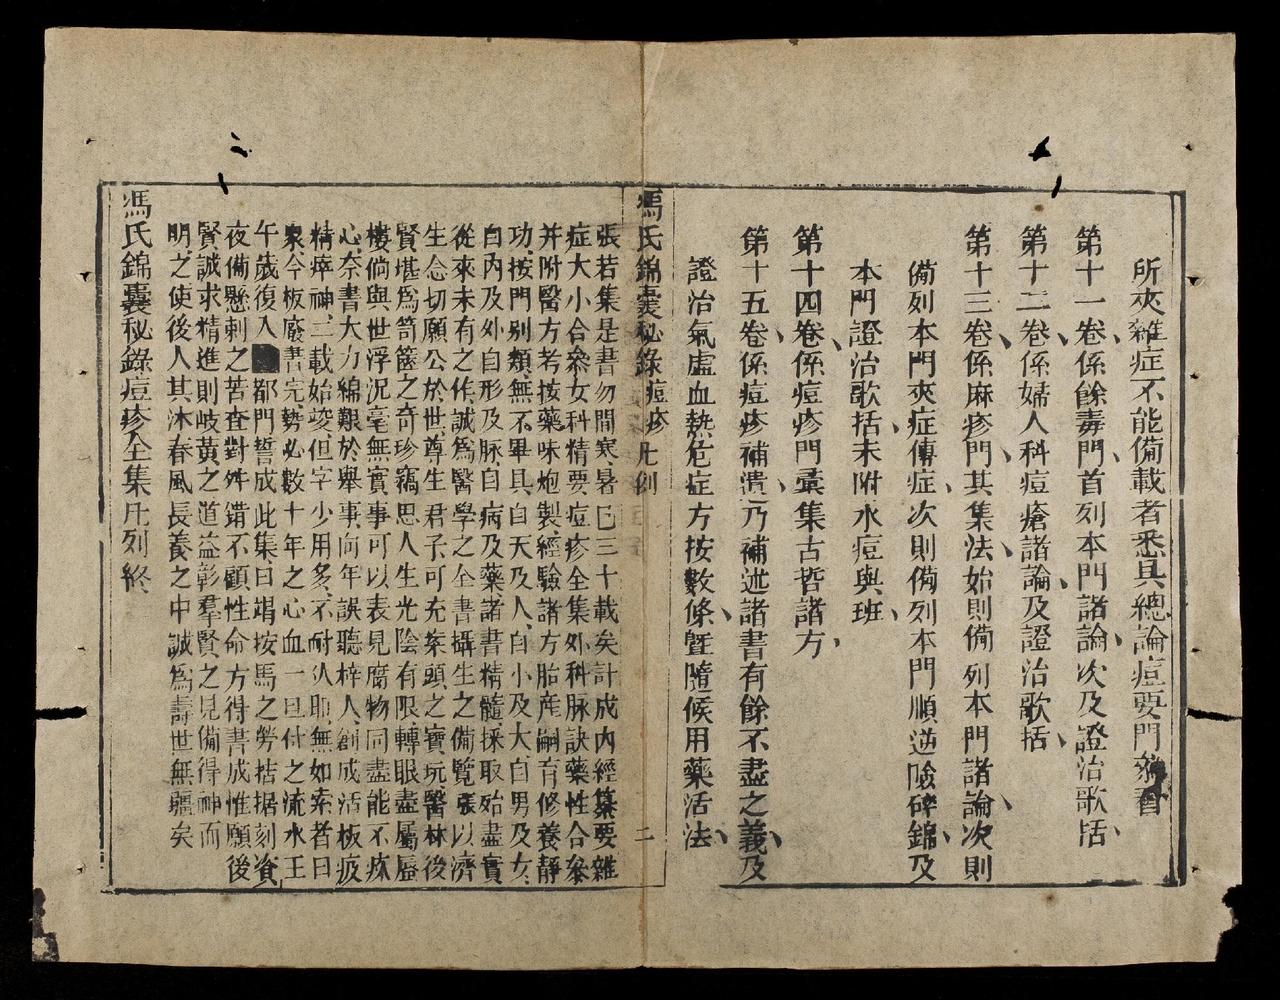 所夾雜症不能備載者悉具總論痘要門叅看
第十一卷係餘毒門首列本門諸論次及證治歌括
第十二卷係婦人科痘瘡諸論及證治歌括
第十三卷係麻疹門其集法始則備列本門諸論次則
備列本門夾症傳症次則備列本門順逆險碎錦及
本門證治歌括未附水痘與班
第十四卷係痘疹門彚集古哲諸方
第十五卷係痘疹補遺乃補述諸書有餘不盡之義及
證治氣虛血熱危症方按數條曁隨候用藥活法
馮氏錦囊秘錄痘疹凡例 二
張若集是書勿間寒暑已三十載矣計成內經纂要雜
症大小合叅女科精要痘疹全集外科脉訣藥性合叅
并附醫方考按藥味炮製經驗諸方胎産嗣育修養靜
功按門別類無不畢具自天及人自小及大自男及女
自內及外自形及脉自病及藥諸書精髓採取殆盡實
從來未有之作誠爲醫學之全書攝生之備覽張以濟
生念切願公於世尊生君子可充案頭之寶玩醫林後
賢堪爲笥篋之奇珍竊思人生光陰有限轉眼盡屬蜃
樓倘與世浮況毫無實事可以表見腐物同盡能不疚
心奈書大力綿艱於舉事向年誤聽梓人創成活板疲
精瘁神二載始竣但字少用多不耐久印無如索者日
衆今板廢書完勢必數十年之心血一旦付之流水壬
午歲復入都門誓成此集日竭按馬之勞拮据刻資
夜備懸刺之苦查對舛錯不顧性命方得書成惟願後
賢誠求精進則岐黃之道益彰羣賢之見備得神而
明之使後人其沐春風長養之中誠爲壽世無疆矣
馮氏錦囊秘錄痘疹全集凡列終